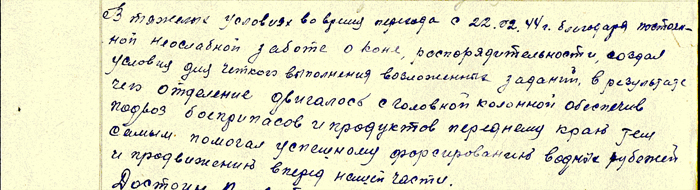 В тяжелых условиях во время перехода с 22.02.44г. благодаря постоян-
ной неослабной заботе о коне, распорядительности, создал
условия для четкого выполнения возложенных заданий, в результате
чего отделение двигалось с головной колонной обеспечив
подвоз боеприпасов и продуктов переднему краю тем
самым помогал успешному форсированию водных рубежей
и продвижению вперед нашей части.
Достоин